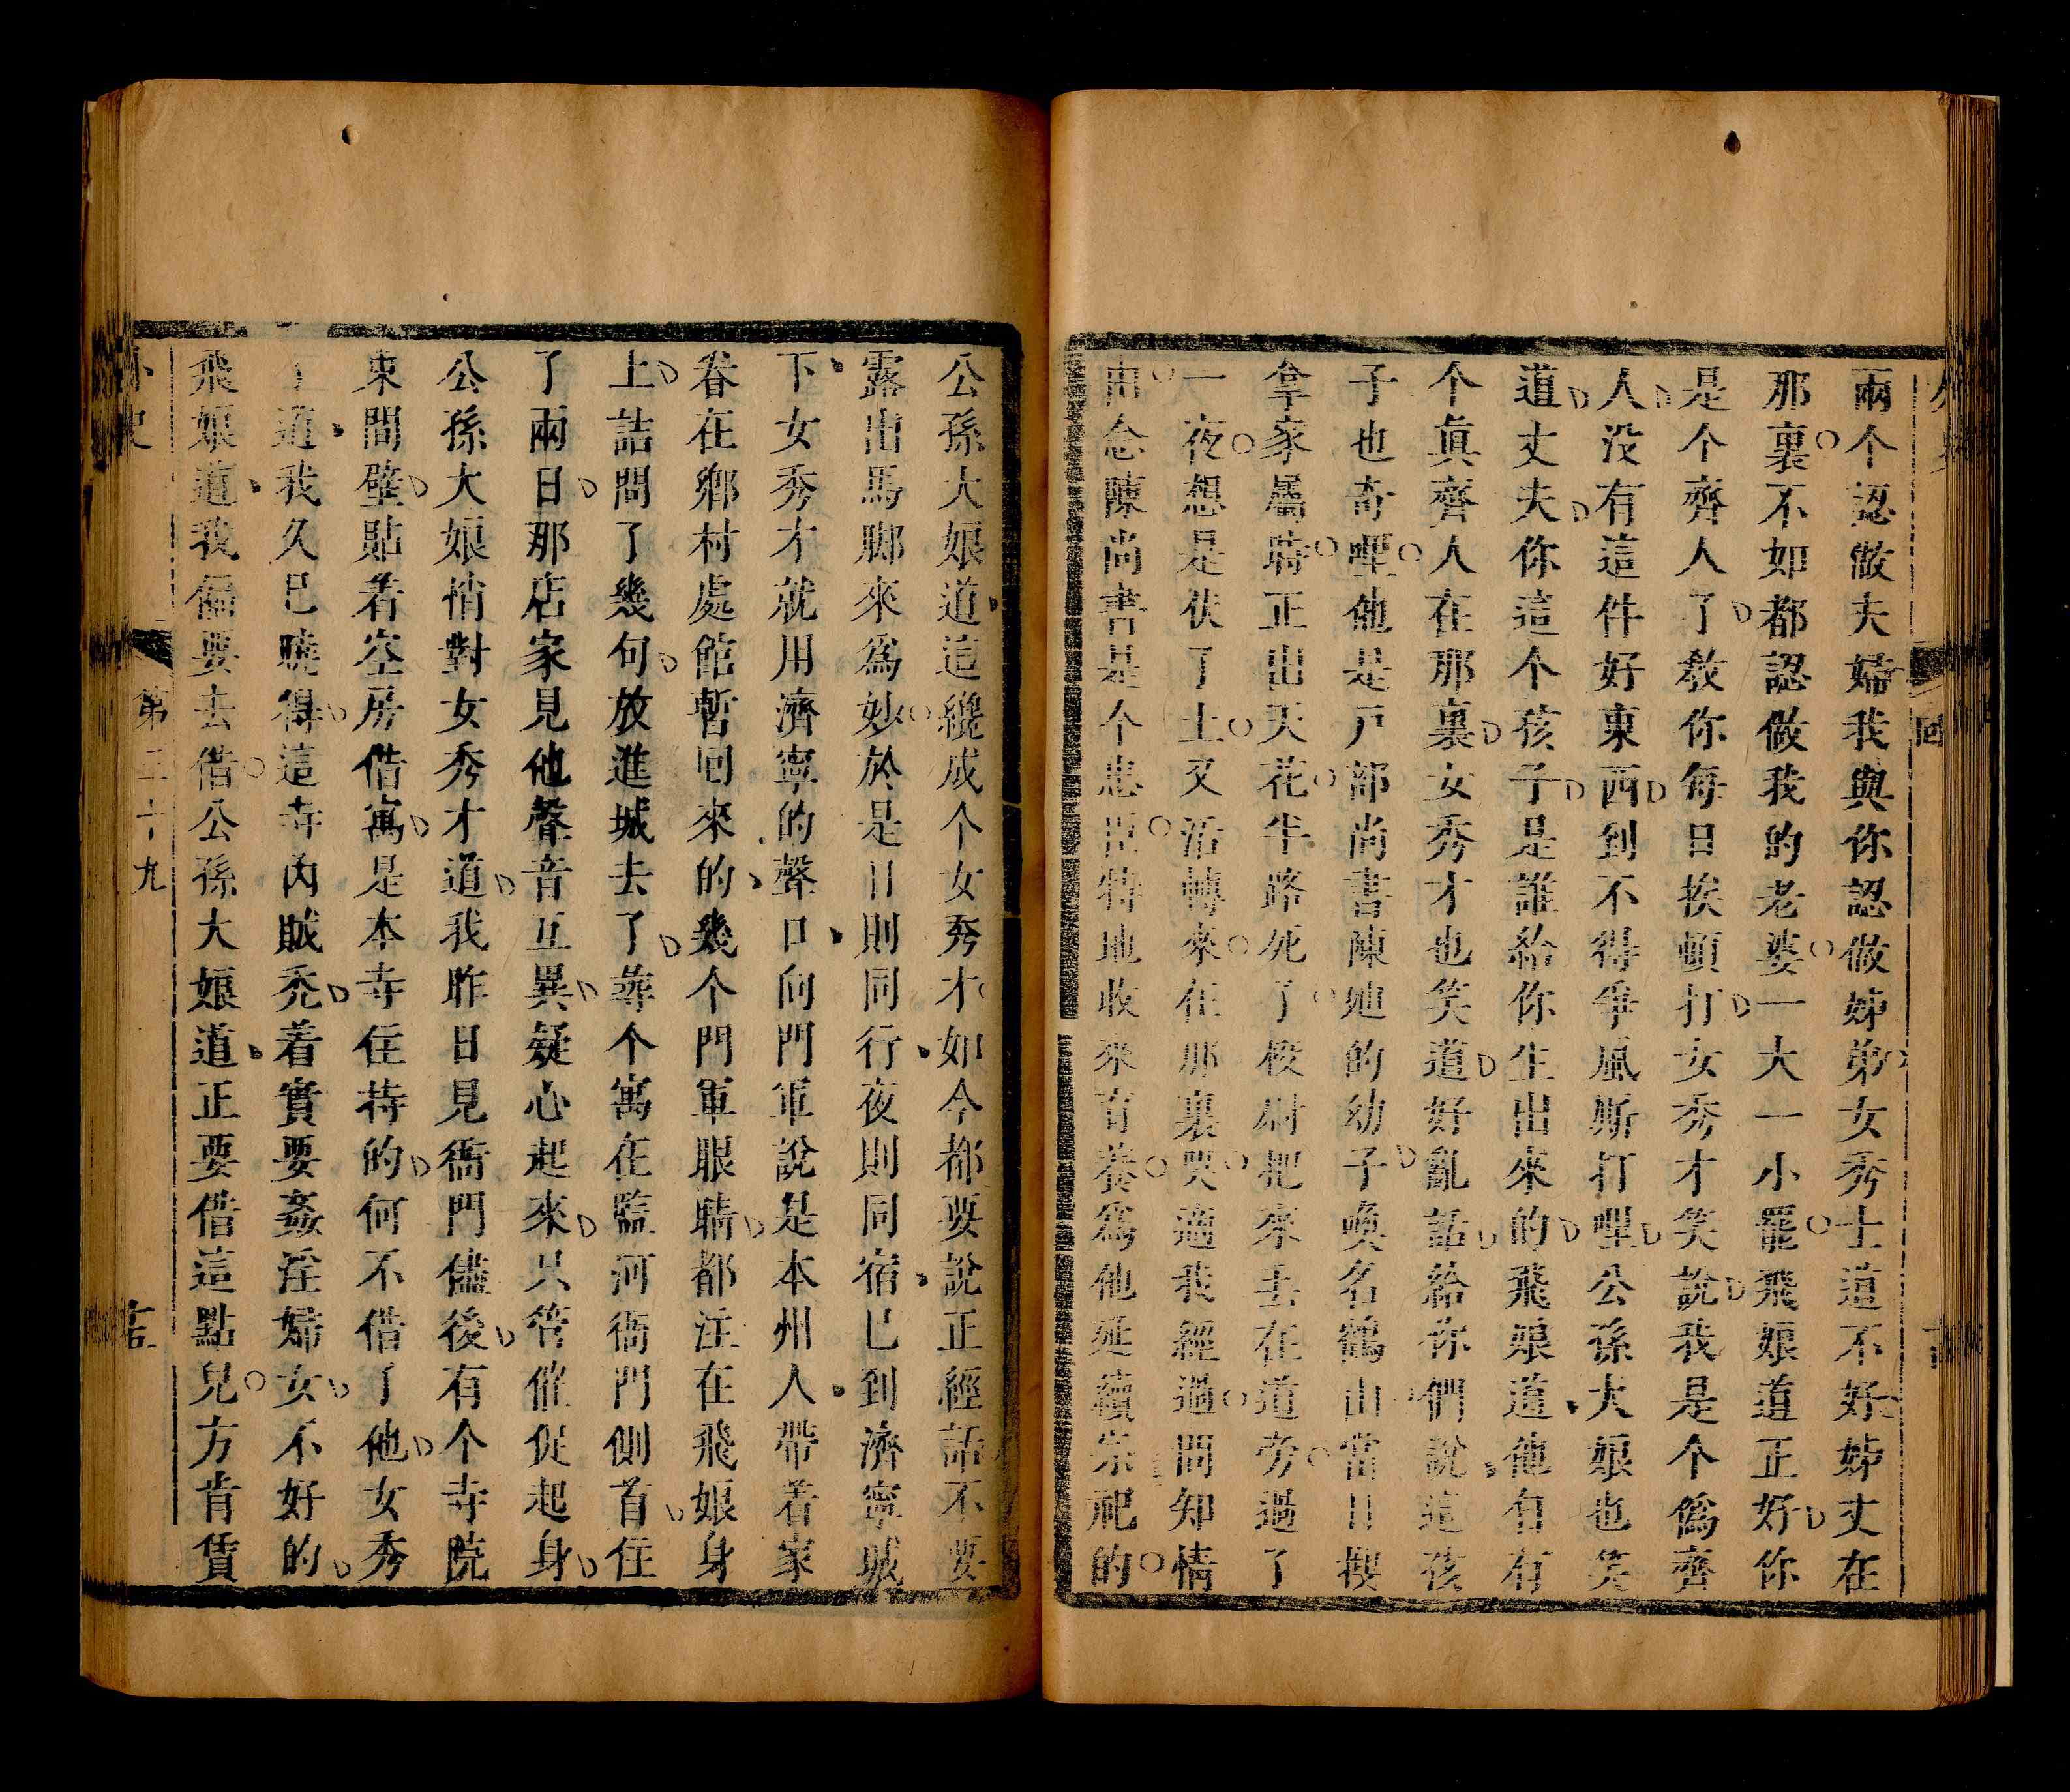 兩个認做夫婦我與你認做姊弟女秀士道不好姊丈在
那裏不如都認做我的老婆一大一小罷飛娘道正好你
是个齊人了教你每日挨頓打女秀才笑說我是个僞齊
人没有這件好東西到不得爭風厮打哩公孫大娘也笑
道丈夫你這个孩子是誰給你生出來的飛娘道他自有
个眞齊人在那裏女秀才也笑道好亂話給你們說這孩
子也奇哩他是戸部尚書陳迪的幼子喚名鶴山當日摉
拿家屬時正出天花半路死了校尉把來丢在道旁過了
一夜想是伏了土又活轉來在那裏哭適我經過問知情
由念陳尚書是个忠臣特地收來育養爲他延續宗祀的
公孫大娘道這纔成个女秀才如今都要說正經話不要
露出馬脚來爲妙於是日則同行夜則同宿已到濟寧城
下女秀才就用濟寧的聲口向門軍說是本州人帶着家
眷在鄉村處館暫回來的幾个門軍眼睛都注在飛娘身
上詰問了幾句放進城去了尋个寓在監河衙門側首住
了兩日那店家見他聲音互異疑心起來只管催促起身
公孫大娘悄對女秀才道我昨日見衙門儘後有个寺院
東間壁貼着空房借寓是本寺住持的何不借了他女秀
道我久已曉得這寺内賊禿着實要姦淫婦女不好的
飛娘道我偏要去借公孫大娘道正要借這點兒方肯賃
外史
第二十九